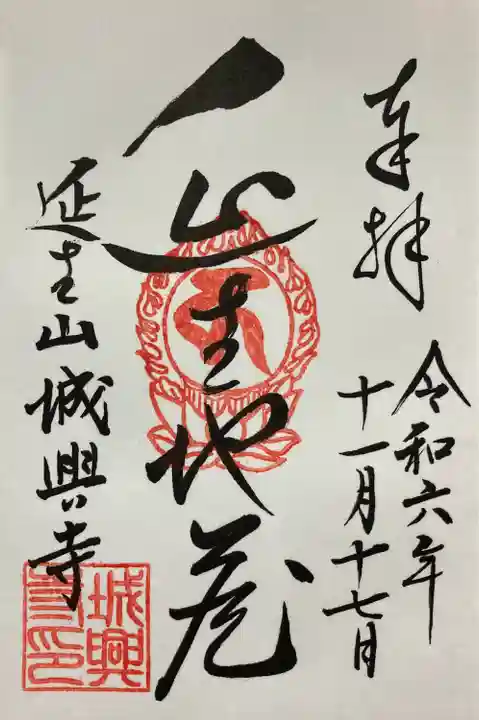 奉拝
令和六年
十一月十七日
延生地蔵
延生山城興寺
城興
寺印